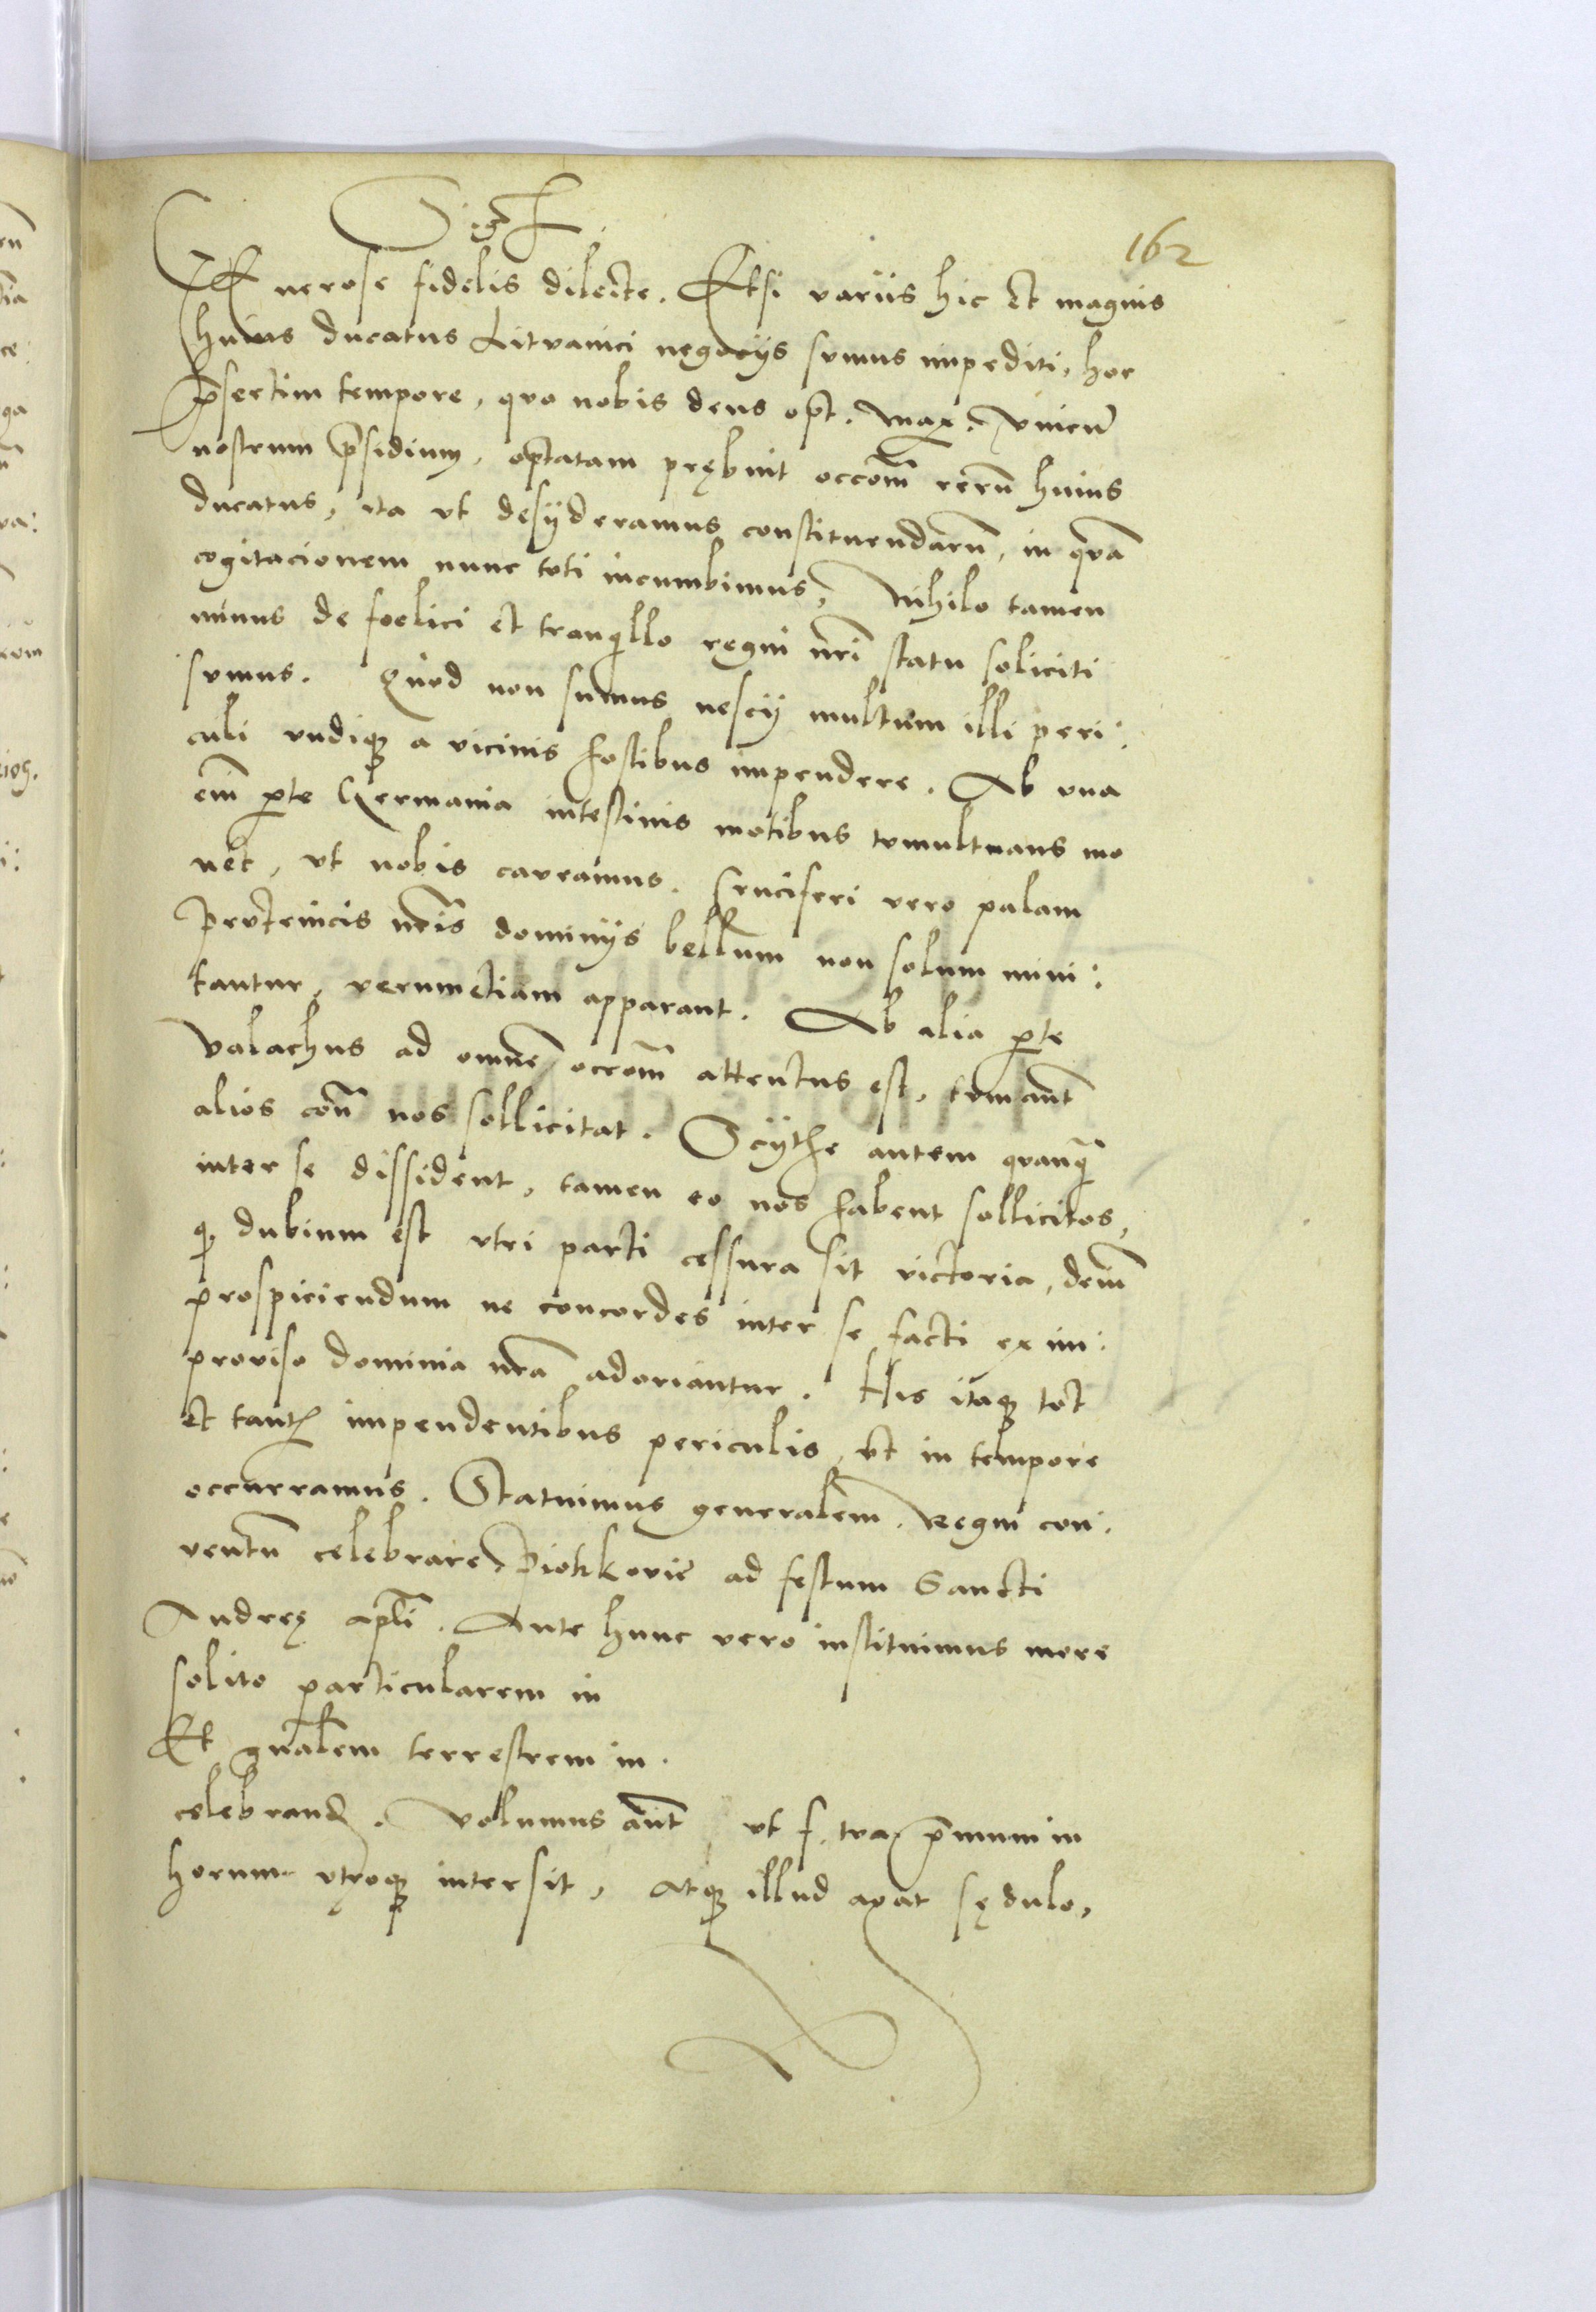 162
Generose fidelis dilecte. Etsi variis hic et magnis
huius ducatus Litvanici negocijs sumus impediti, hoc
p̄sertim tempore, quo nobis deus opt. max. vnicū
nostrum p̄sidium, optatam prębuit occōm̄ rerū huius
ducatus, ita vt desyderamus constituendarū, in quā
cogitacionem nunc toti incumbimus, Nihilo tamen
minus de foelici et tranqillo regni nr̄i statu soliciti
sumus. Quod non sumus nescij multum illi peri:
culi vndiqꝫ a vicinis hostibus impendere. Ab vna
em̄ ꝑte Germania intestinis motibus tumultuans mo
net, vt nobis caveamus. Cruciferi vero palam
Prutenicis nr̄is dominijs bellum non solum mini:
tantur, verumetiam apparant. Ab alia ꝑte
Valachus ad omnē occōm̄ attentus est, tum aūt
alios cōn̄ nos sollicitat. Scythe autem quanq̄
inter se dissident, tamen eo nos habent sollicitos,
qꝫ dubium est vtri parti cessura sit victoria, dein̄
prospiciendum ne concordes inter se facti ex im:
proviso dominia nr̄a adoriantur. His itaqꝫ tot
et tantꝭ impendentibus periculis, vt in tempore
occurramus. Statuimus generalem Regni con:
ventū celebrare Piotrkovię ad festum Sancti
Andreę apl̄i. Ante hunc vero instituimus more
solito particularem in
Et gn̄alem terrestrem in.
celebrand. Volumus aūt vt f. tua p̄mum in
horum vtroqꝫ intersit, atqꝫ illud agat sędulo,